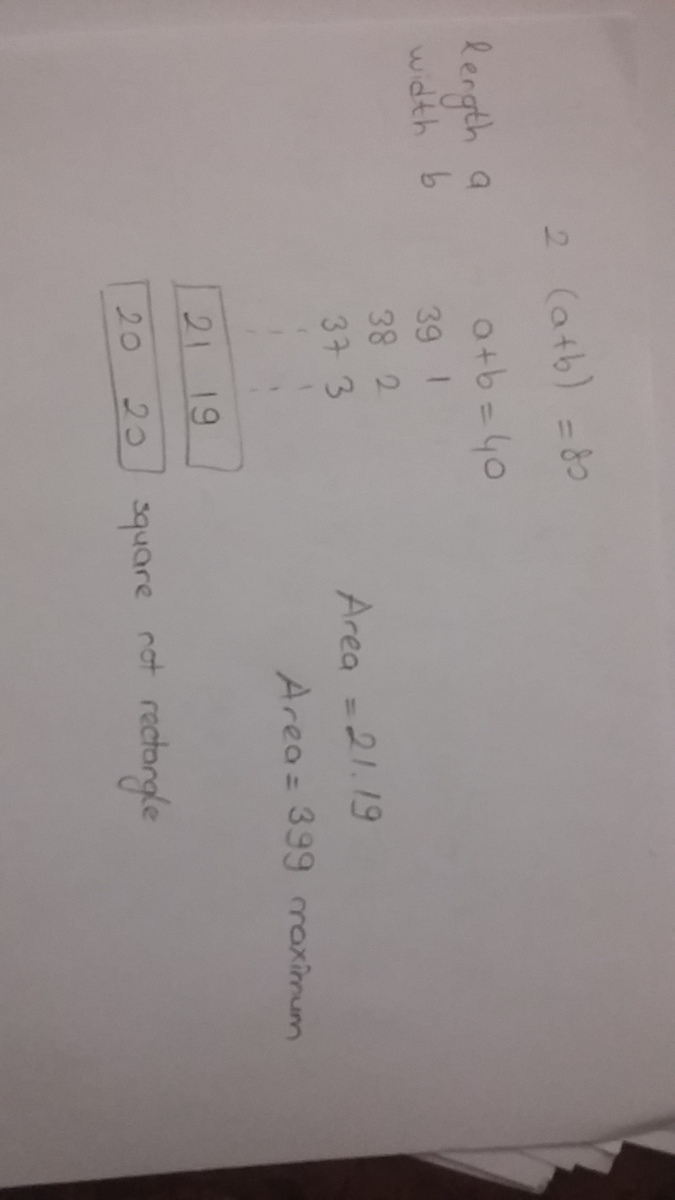 2 (a+b) = 80
length a
width b
a+b = 40
39 1
38 2
37 3
21 19
20 20 square not rectangle
Area = 21.19
Area = 399 maximum